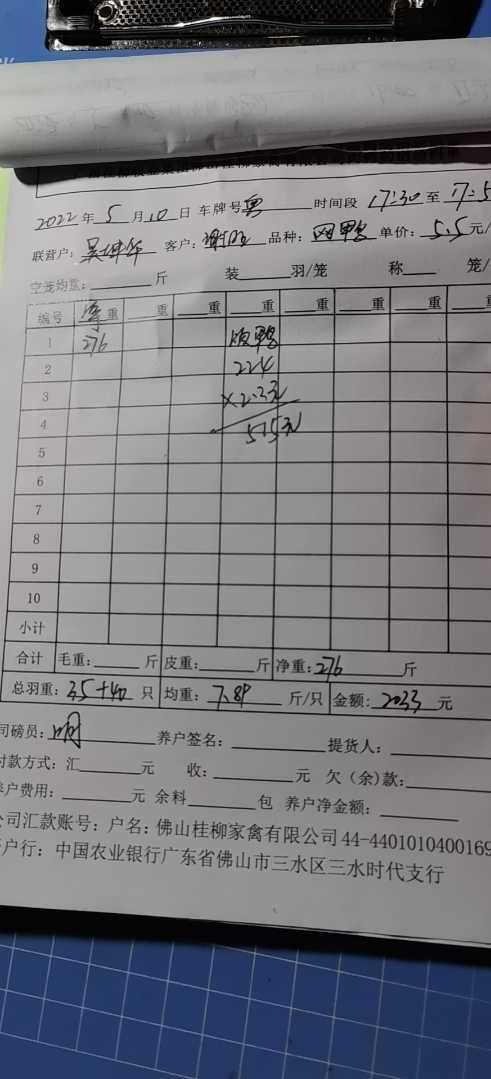 2022年 5 月 10 日 车牌号粤 时间段 17:30 至 17:5
联营户: 客户: 品种: 单价: 5.5元/
空笼均重: 斤 装 羽/笼 称 笼/
编号 重 重 重 重 重 重 重
1 276
2 224
3 ×2.3元
4 515元
5
6
7
8
9
10
小计
合计 毛重: 斤 皮重: 斤 净重: 276 斤
总羽重: 35+40 只 均重: 7.89 斤/只 金额: 2033 元
司磅员: 明 养户签名: 提货人:
付款方式: 汇 元 收: 元 欠(余)款:
养户费用: 元 余料 包 养户净金额:
公司汇款账号: 户名: 佛山桂柳家禽有限公司 44-4401010400169
开户行: 中国农业银行广东省佛山市三水区三水时代支行